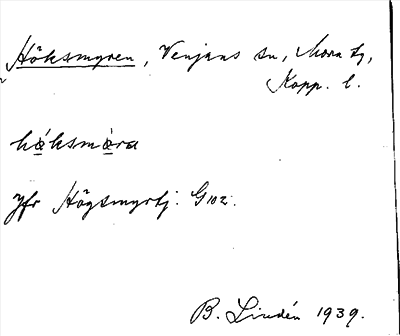 Höksmyren, Venjans sn, Mora tj,
Kopp. l.
håksmòra
Jfr Högsmyrtj. G102.
B. Lindén 1939.